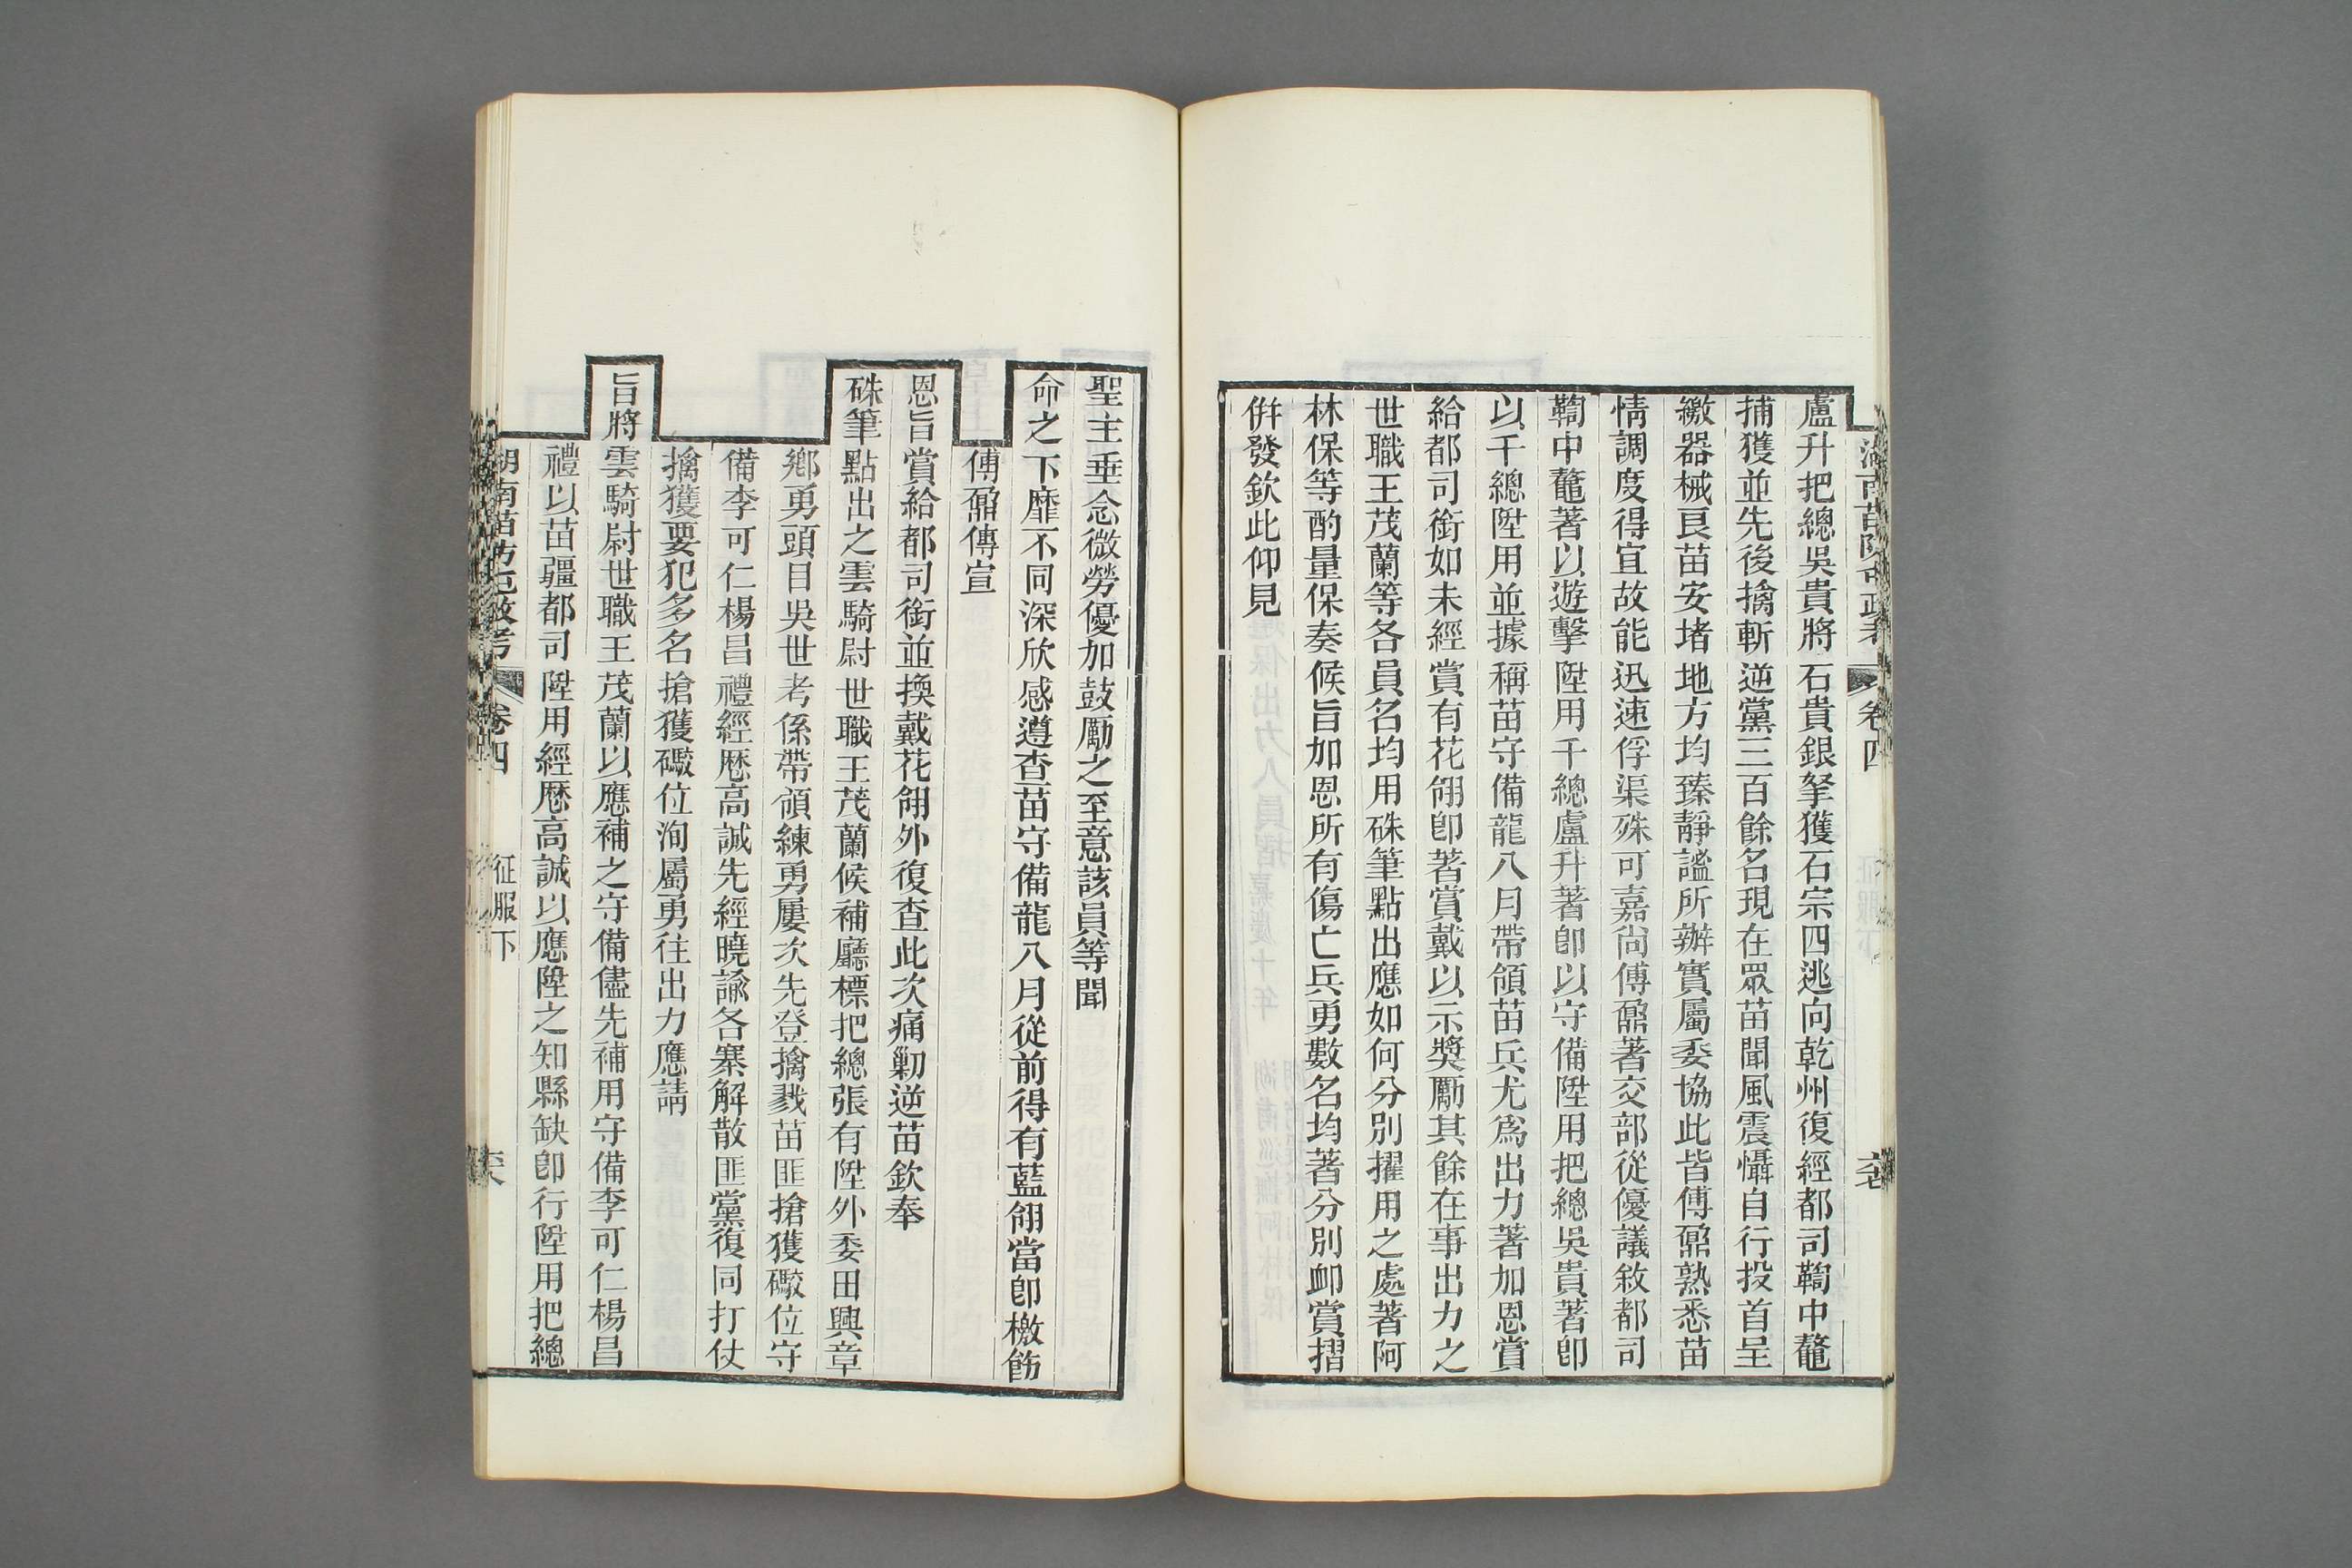 盧升把總吳貴將石貴銀拏獲石宗四逃向乾州復經都司鞫中鼇
捕獲並先後擒斬逆黨三百餘名現在眾苗聞風震懾自行投首呈
繳器械良苗安堵地方均臻靜謐所辦實屬委協此皆傅鼐熟悉苗
情調度得宜故能迅速俘渠殊可嘉尙傅鼐著交部從優議敘都司
鞫中鼇著以遊擊陞用千總盧升著卽以守備陞用把總吳貴著卽
以千總陞用並據稱苗守備龍八月帶領苗兵尤爲出力著加恩賞
給都司銜如未經賞有花翎卽著賞戴以示獎勵其餘在事出力之
世職王茂蘭等各員名均用硃筆點出應如何分別擢用之處著阿
林保等酌量保奏候旨加恩所有傷亡兵勇數名均著分別卹賞摺
併發欽此仰見
聖主垂念微勞優加鼓勵之至意該員等聞
命之下靡不同深欣感遵查苗守備龍八月從前得有藍翎當卽檄飭
傅鼐傳宣
恩旨賞給都司銜並換戴花翎外復查此次痛勦逆苗欽奉
硃筆點出之雲騎尉世職王茂蘭候補廳標把總張有陞外委田興章
鄉勇頭目吳世考係帶領練勇屢次先登擒戮苗匪搶獲礮位守
備李可仁楊昌禮經歷高誠先經曉諭各寨解散匪黨復同打仗
擒獲要犯多名搶獲礮位洵屬勇往出力應請
旨將雲騎尉世職王茂蘭以應補之守備儘先補用守備李可仁楊昌
禮以苗疆都司陞用經歷高誠以應陞之知縣缺卽行陞用把總
湖南苗防屯政考 卷四 征服下